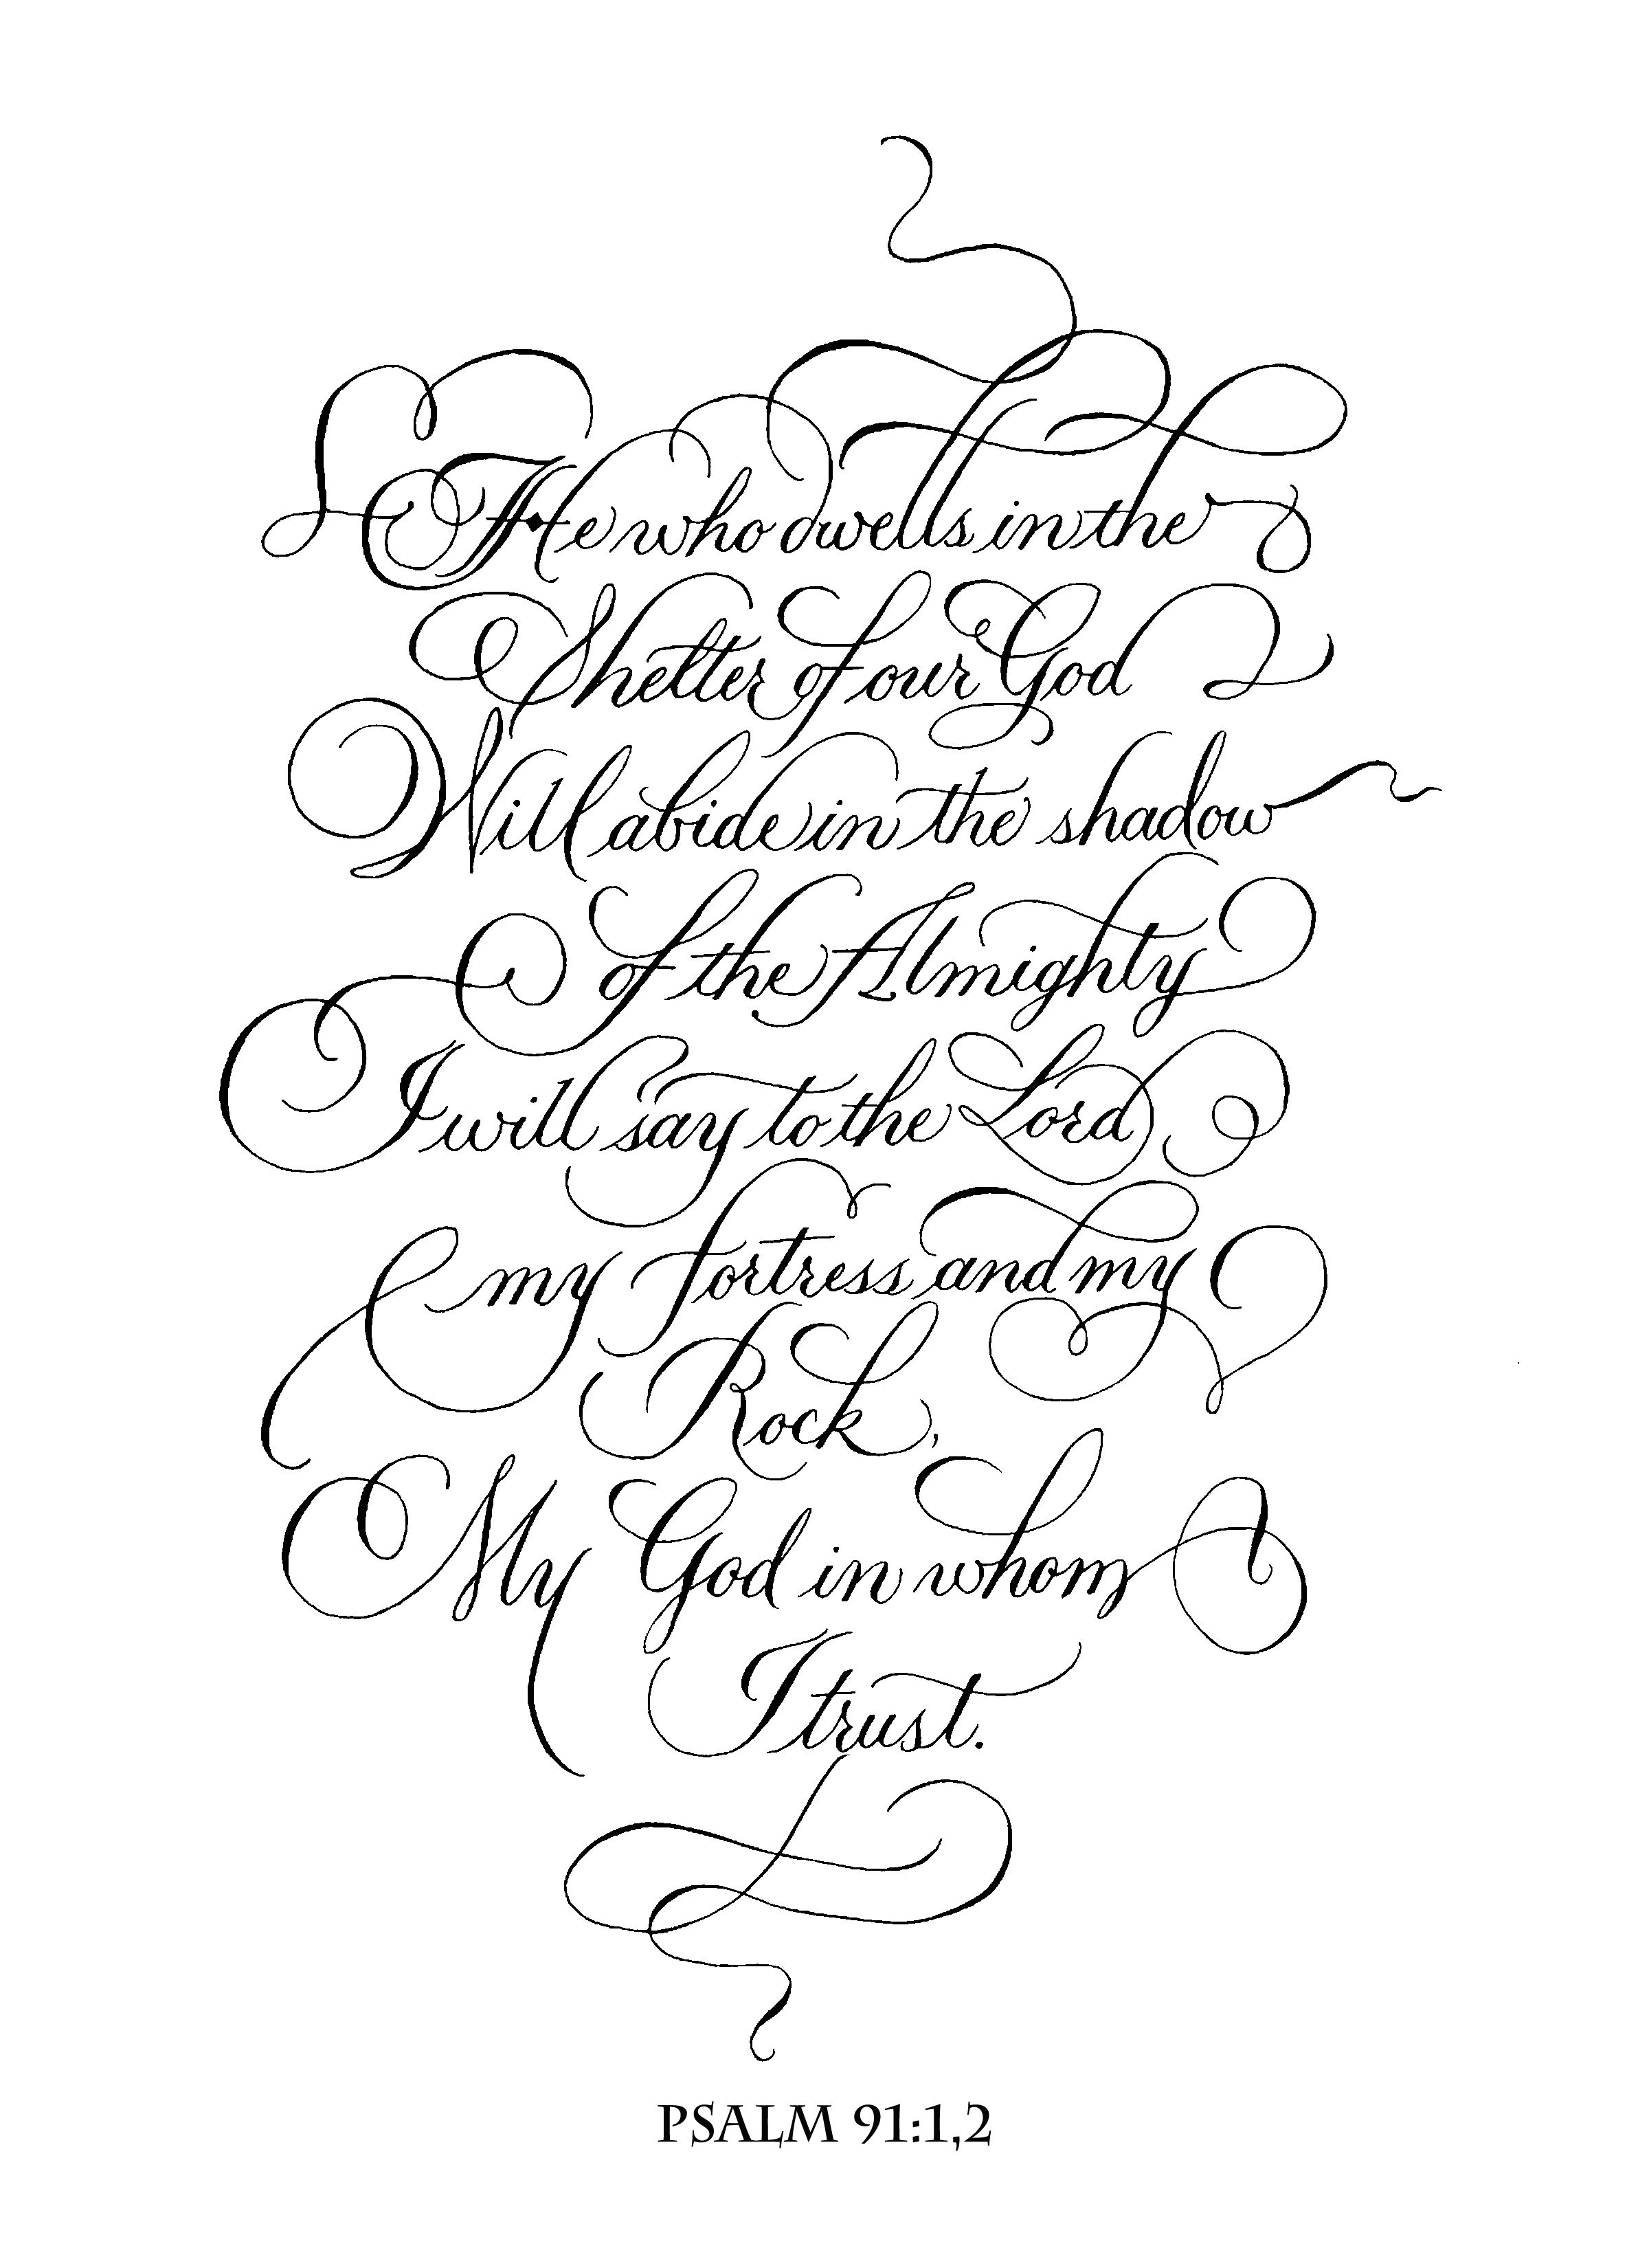 He who dwells in the
Shelter of our God
Will abide in the shadow
of the Almighty
I will say to the Lord
my fortress and my
Rock,
My God in whom
I trust.
PSALM 91:1,2